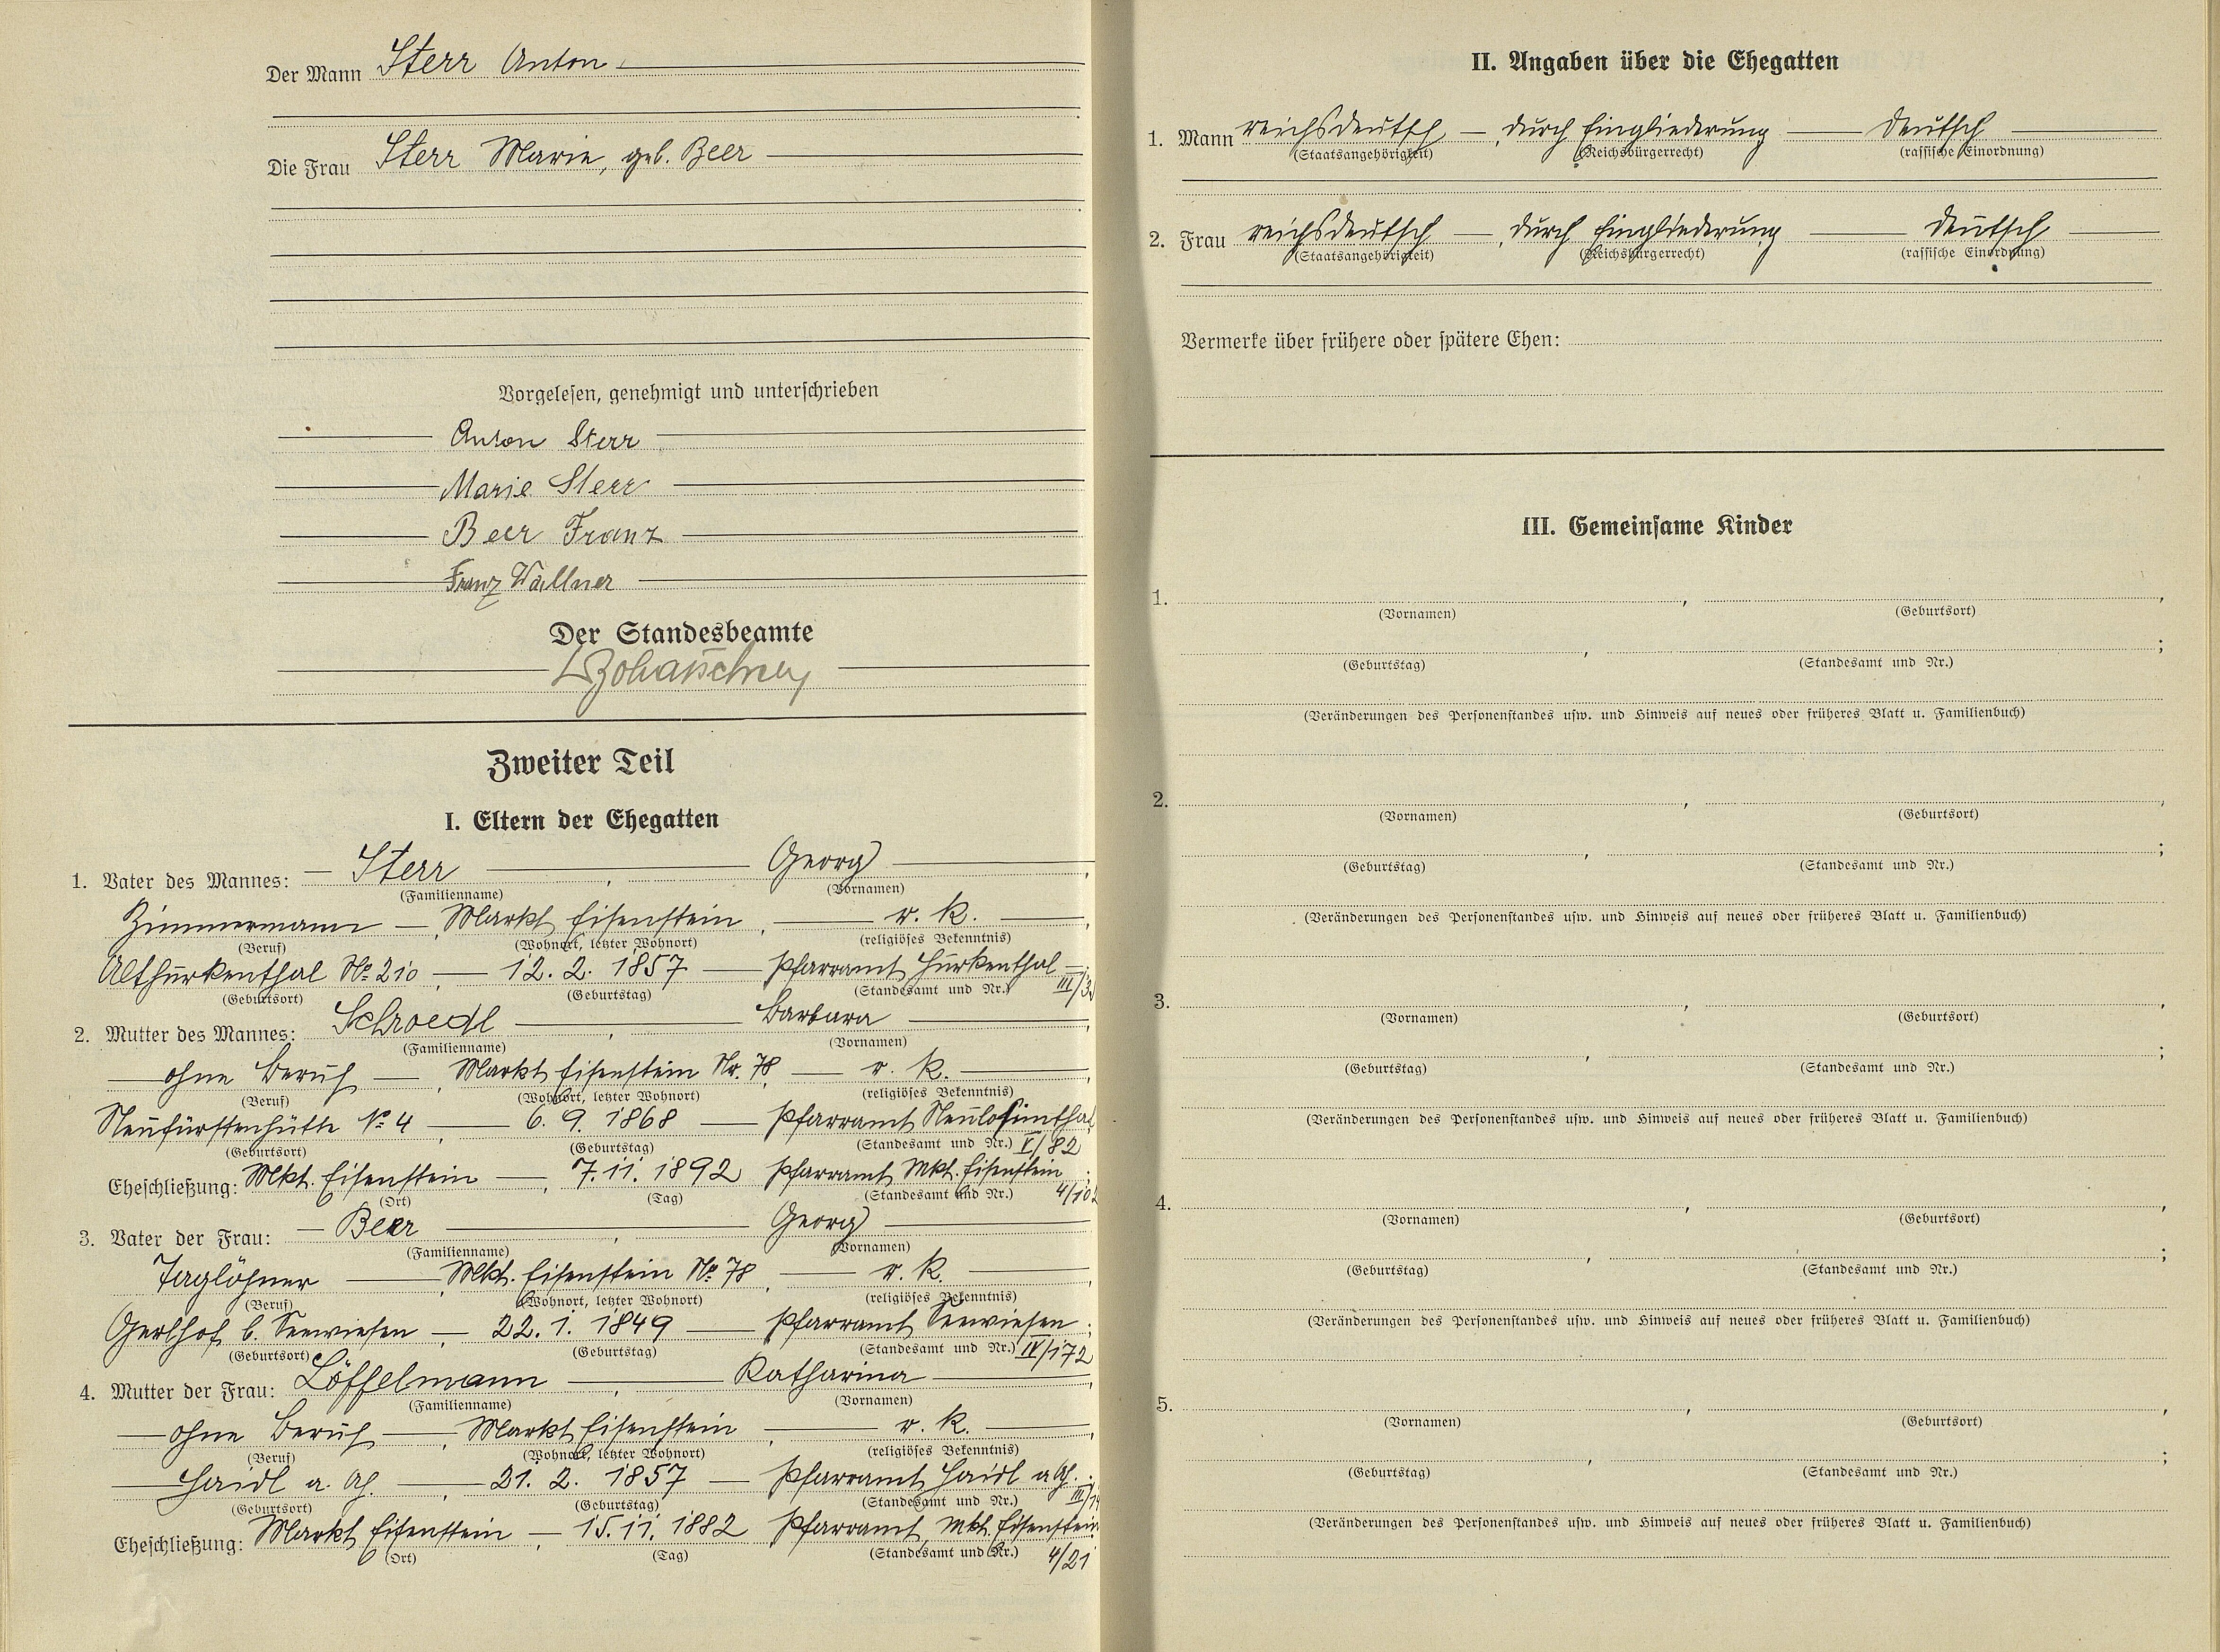 Der Mann Sterr Anton
Die Frau Sterr Marie, geb. Beer
Vorgelesen, genehmigt und unterschrieben
Anton Sterr
Marie Sterr
Beer Franz
Franz Wallner
Der Standesbeamte
Zweiter Teil
I. Eltern der Ehegatten
1. Vater des Mannes: Sterr, Georg,
(Familienname) (Vornamen)
Zimmermann, Markt Eisenstein, r. k.,
(Beruf) (Wohnort, letzter Wohnort) (religiöses Bekenntnis)
Althurkenthal № 210, 12. 2. 1857 Pfarramt Hurkenthal;
(Geburtsort) (Geburtstag) (Standesamt und Nr.)
2. Mutter des Mannes: Schroedl, Barbara,
(Familienname) (Vornamen)
ohne Beruf, Markt Eisenstein Nr. 78, r. k.,
(Beruf) (Wohnort, letzter Wohnort) (religiöses Bekenntnis)
Neufürstenhütte № 4, 6. 9. 1868 Pfarramt Neulosimthal
(Geburtsort) (Geburtstag) (Standesamt und Nr.) V/82
Eheschließung: Mkt. Eisenstein, 7. 11. 1892 Pfarramt Mkt. Eisenstein;
(Ort) (Tag) (Standesamt und Nr.)
3. Vater der Frau: Beer, Georg,
(Familienname) (Vornamen)
Taglöhner, Mkt. Eisenstein № 78, r. k.,
(Beruf) (Wohnort, letzter Wohnort) (religiöses Bekenntnis)
Gerlhof b. Seewiesen, 22. 1. 1849 Pfarramt Seewiesen;
(Geburtsort) (Geburtstag) (Standesamt und Nr.) IV/172
4. Mutter der Frau: Löffelmann, Katharina,
(Familienname) (Vornamen)
ohne Beruf, Markt Eisenstein, r. k.,
(Beruf) (Wohnort, letzter Wohnort) (religiöses Bekenntnis)
Haidl a. Ah., 21. 2. 1857 Pfarramt Haidl a Ah.;
(Geburtsort) (Geburtstag) (Standesamt und Nr.)
Eheschließung: Markt Eisenstein, 15. 11. 1882 Pfarramt Mkt. Eisenstein
(Ort) (Tag) (Standesamt und Nr.) 4/21
II. Angaben über die Ehegatten
1. Mann reichsdeutsch, durch Eingliederung deutsch
(Staatsangehörigkeit) (Reichsbürgerrecht) (rassische Einordnung)
2. Frau reichsdeutsch, durch Eingliederung deutsch
(Staatsangehörigkeit) (Reichsbürgerrecht) (rassische Einordnung)
Vermerke über frühere oder spätere Ehen:
III. Gemeinsame Kinder
1. , ,
(Vornamen) (Geburtsort)
, ;
(Geburtstag) (Standesamt und Nr.)
(Veränderungen des Personenstandes usw. und Hinweis auf neues oder früheres Blatt u. Familienbuch)
2. , ,
(Vornamen) (Geburtsort)
, ;
(Geburtstag) (Standesamt und Nr.)
(Veränderungen des Personenstandes usw. und Hinweis auf neues oder früheres Blatt u. Familienbuch)
3. , ,
(Vornamen) (Geburtsort)
, ;
(Geburtstag) (Standesamt und Nr.)
(Veränderungen des Personenstandes usw. und Hinweis auf neues oder früheres Blatt u. Familienbuch)
4. , ,
(Vornamen) (Geburtsort)
, ;
(Geburtstag) (Standesamt und Nr.)
(Veränderungen des Personenstandes usw. und Hinweis auf neues oder früheres Blatt u. Familienbuch)
5. , ,
(Vornamen) (Geburtsort)
, ;
(Geburtstag) (Standesamt und Nr.)
(Veränderungen des Personenstandes usw. und Hinweis auf neues oder früheres Blatt u. Familienbuch)